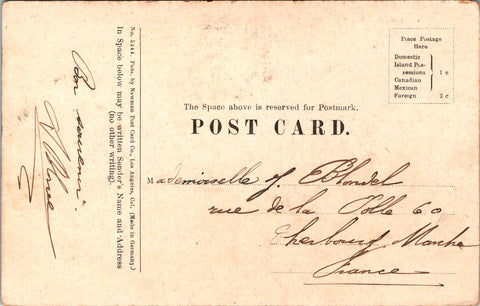 Place Postage
Here.
Domestic
Island Pos-
sessions
Canadian
Mexican
1c
Foreign 2c
The Space above is reserved for Postmark.
POST CARD.
Mademoiselle J. Blondel
rue de la Polle 60
Cherbourg Manche
France
No. 5244. Pub. by Newman Post Card Co., Los Angeles, Cal. (Made in Germany.)
In Space below may be written Sender's Name and Address
(no other writing).
Bon souvenir